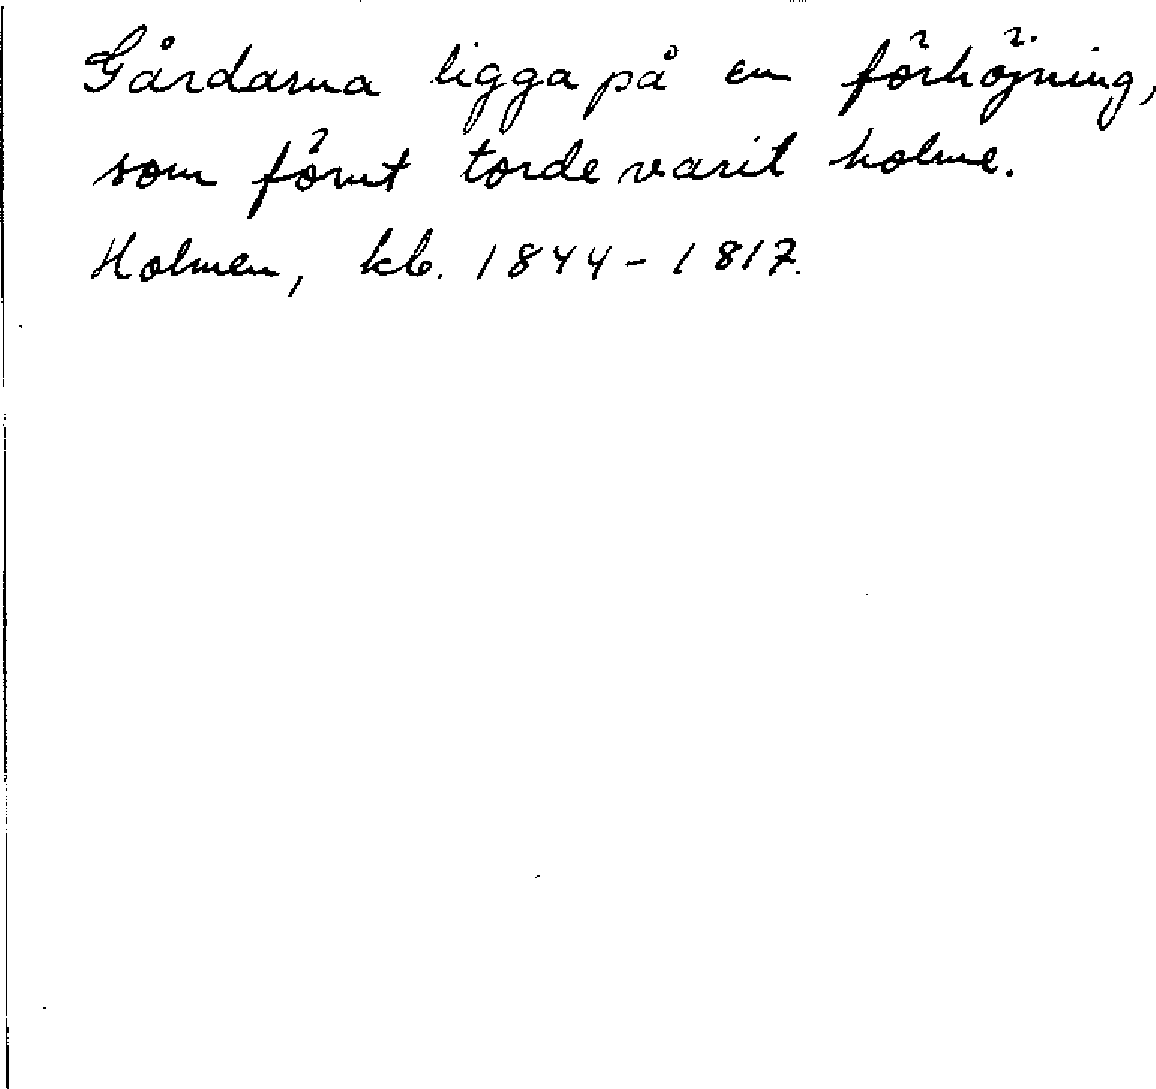 Gårdarna ligga på en förhöjning,
som förut torde varit holme.
Holmen, kb. 1844-1817.